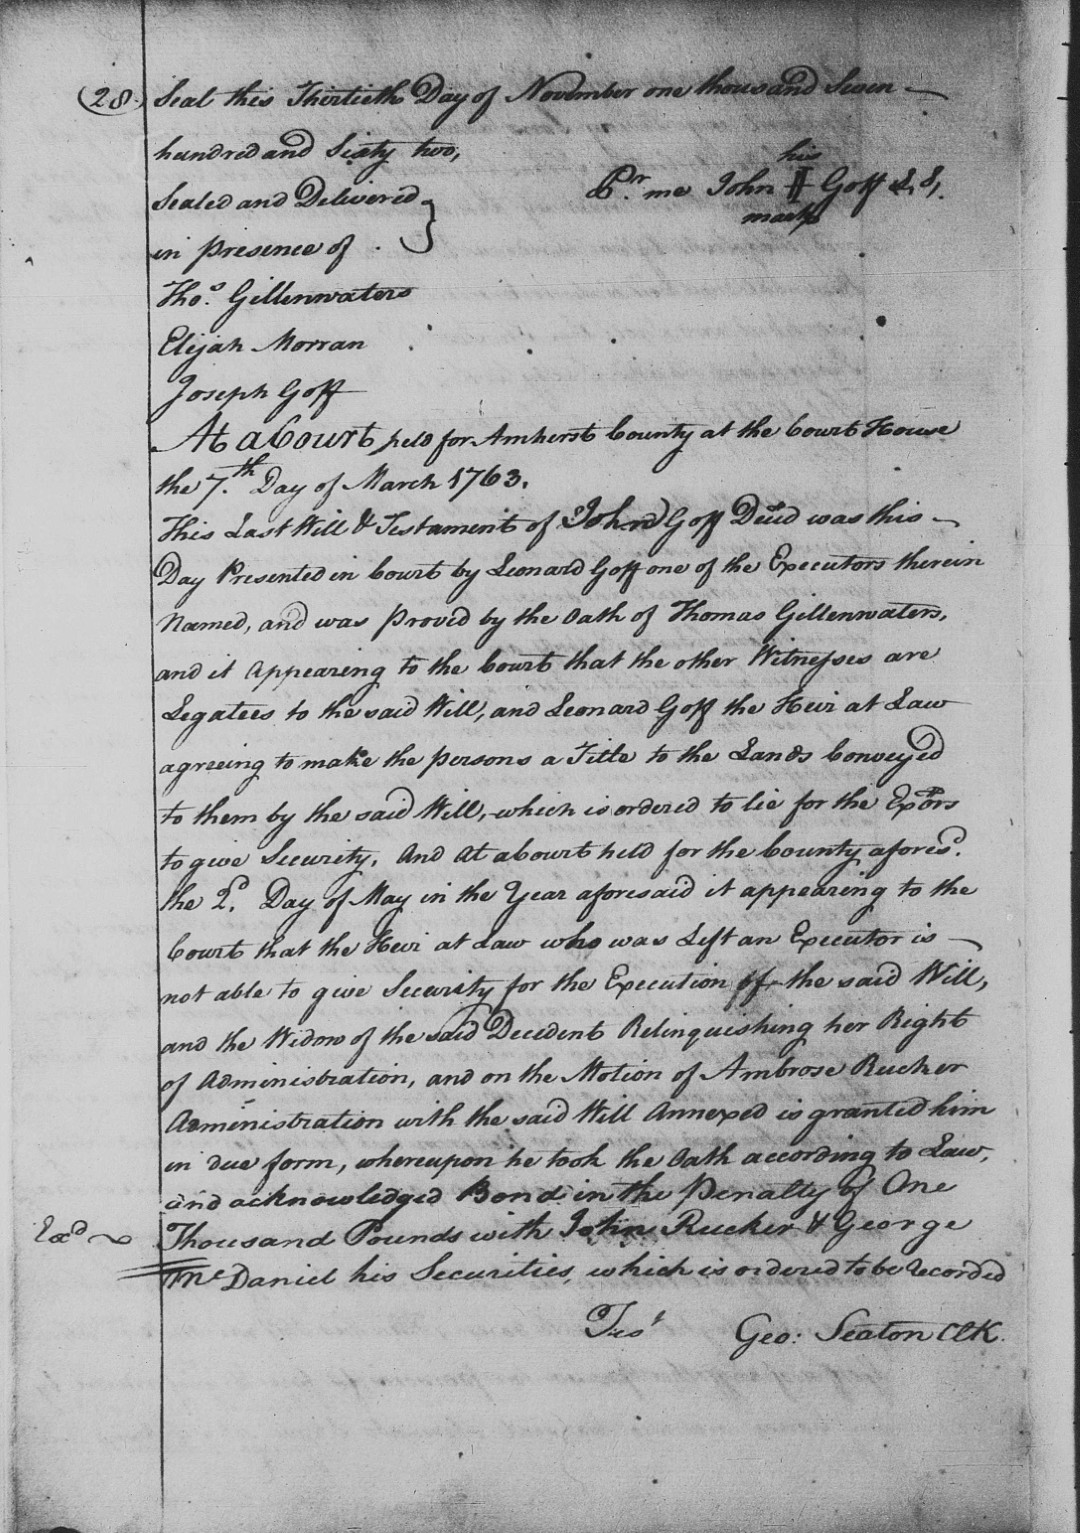 (28) Seal this Thirtieth Day of November one thousand Seven
hundred and Sixty two,
his
Sealed and Delivered } Pr. me John Goff L S,
mark
in presence of
Thos. Gillenwaters
Elijah Morran
Joseph Goff
At a Court held for Amherst County at the Court House
the 7.th Day of March 1763.
This Last Will & Testament of John Goff Decd was this
Day Presented in Court by Leonard Goff one of the Executors therein
Named, and was Proved by the Oath of Thomas Gillenwaters,
and it appearing to the Court that the other Witnesses are
Legatees to the said Will, and Leonard Goff the Heir at Law
agreeing to make the persons a Title to the Lands Conveyed
to them by the said Will, which is ordered to lie for the Exors
to give Security, And At a Court held for the County aforesd.
the 2d. Day of May in the Year aforesaid it appearing to the
Court that the Heir at Law who was Left an Executor is
not able to give Security for the Execution of the said Will,
and the Widow of the said Decedent Relinquishing her Right
of Administration, and on the Motion of Ambrose Rucker
Administration with the said Will Annexed is granted him
in due form, whereupon he took the Oath according to Law,
and acknowledged Bond in the Penalty of One
Thousand Pounds with John Rucker & George
McDaniel his Securities, which is ordered to be Recorded
Test
Geo: Seaton ClK.